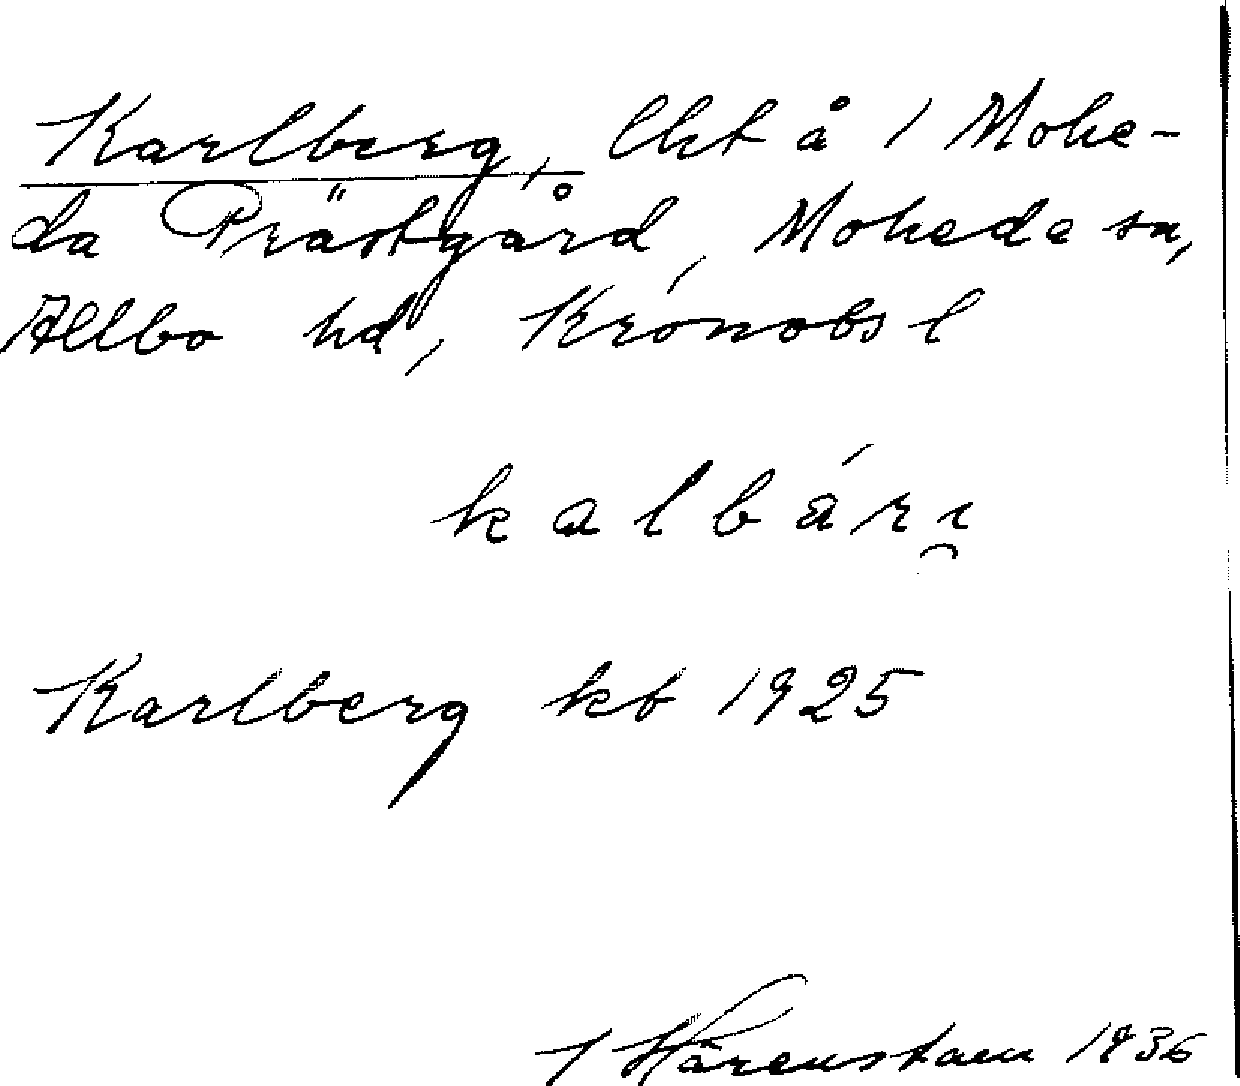 Karlberg, lht å 1 Mohe-
da Prästgård, Moheda sn,
Allbo hd, Kronobs l
kalbárı̯
Karlberg kb 1925
J Härenstam 1936